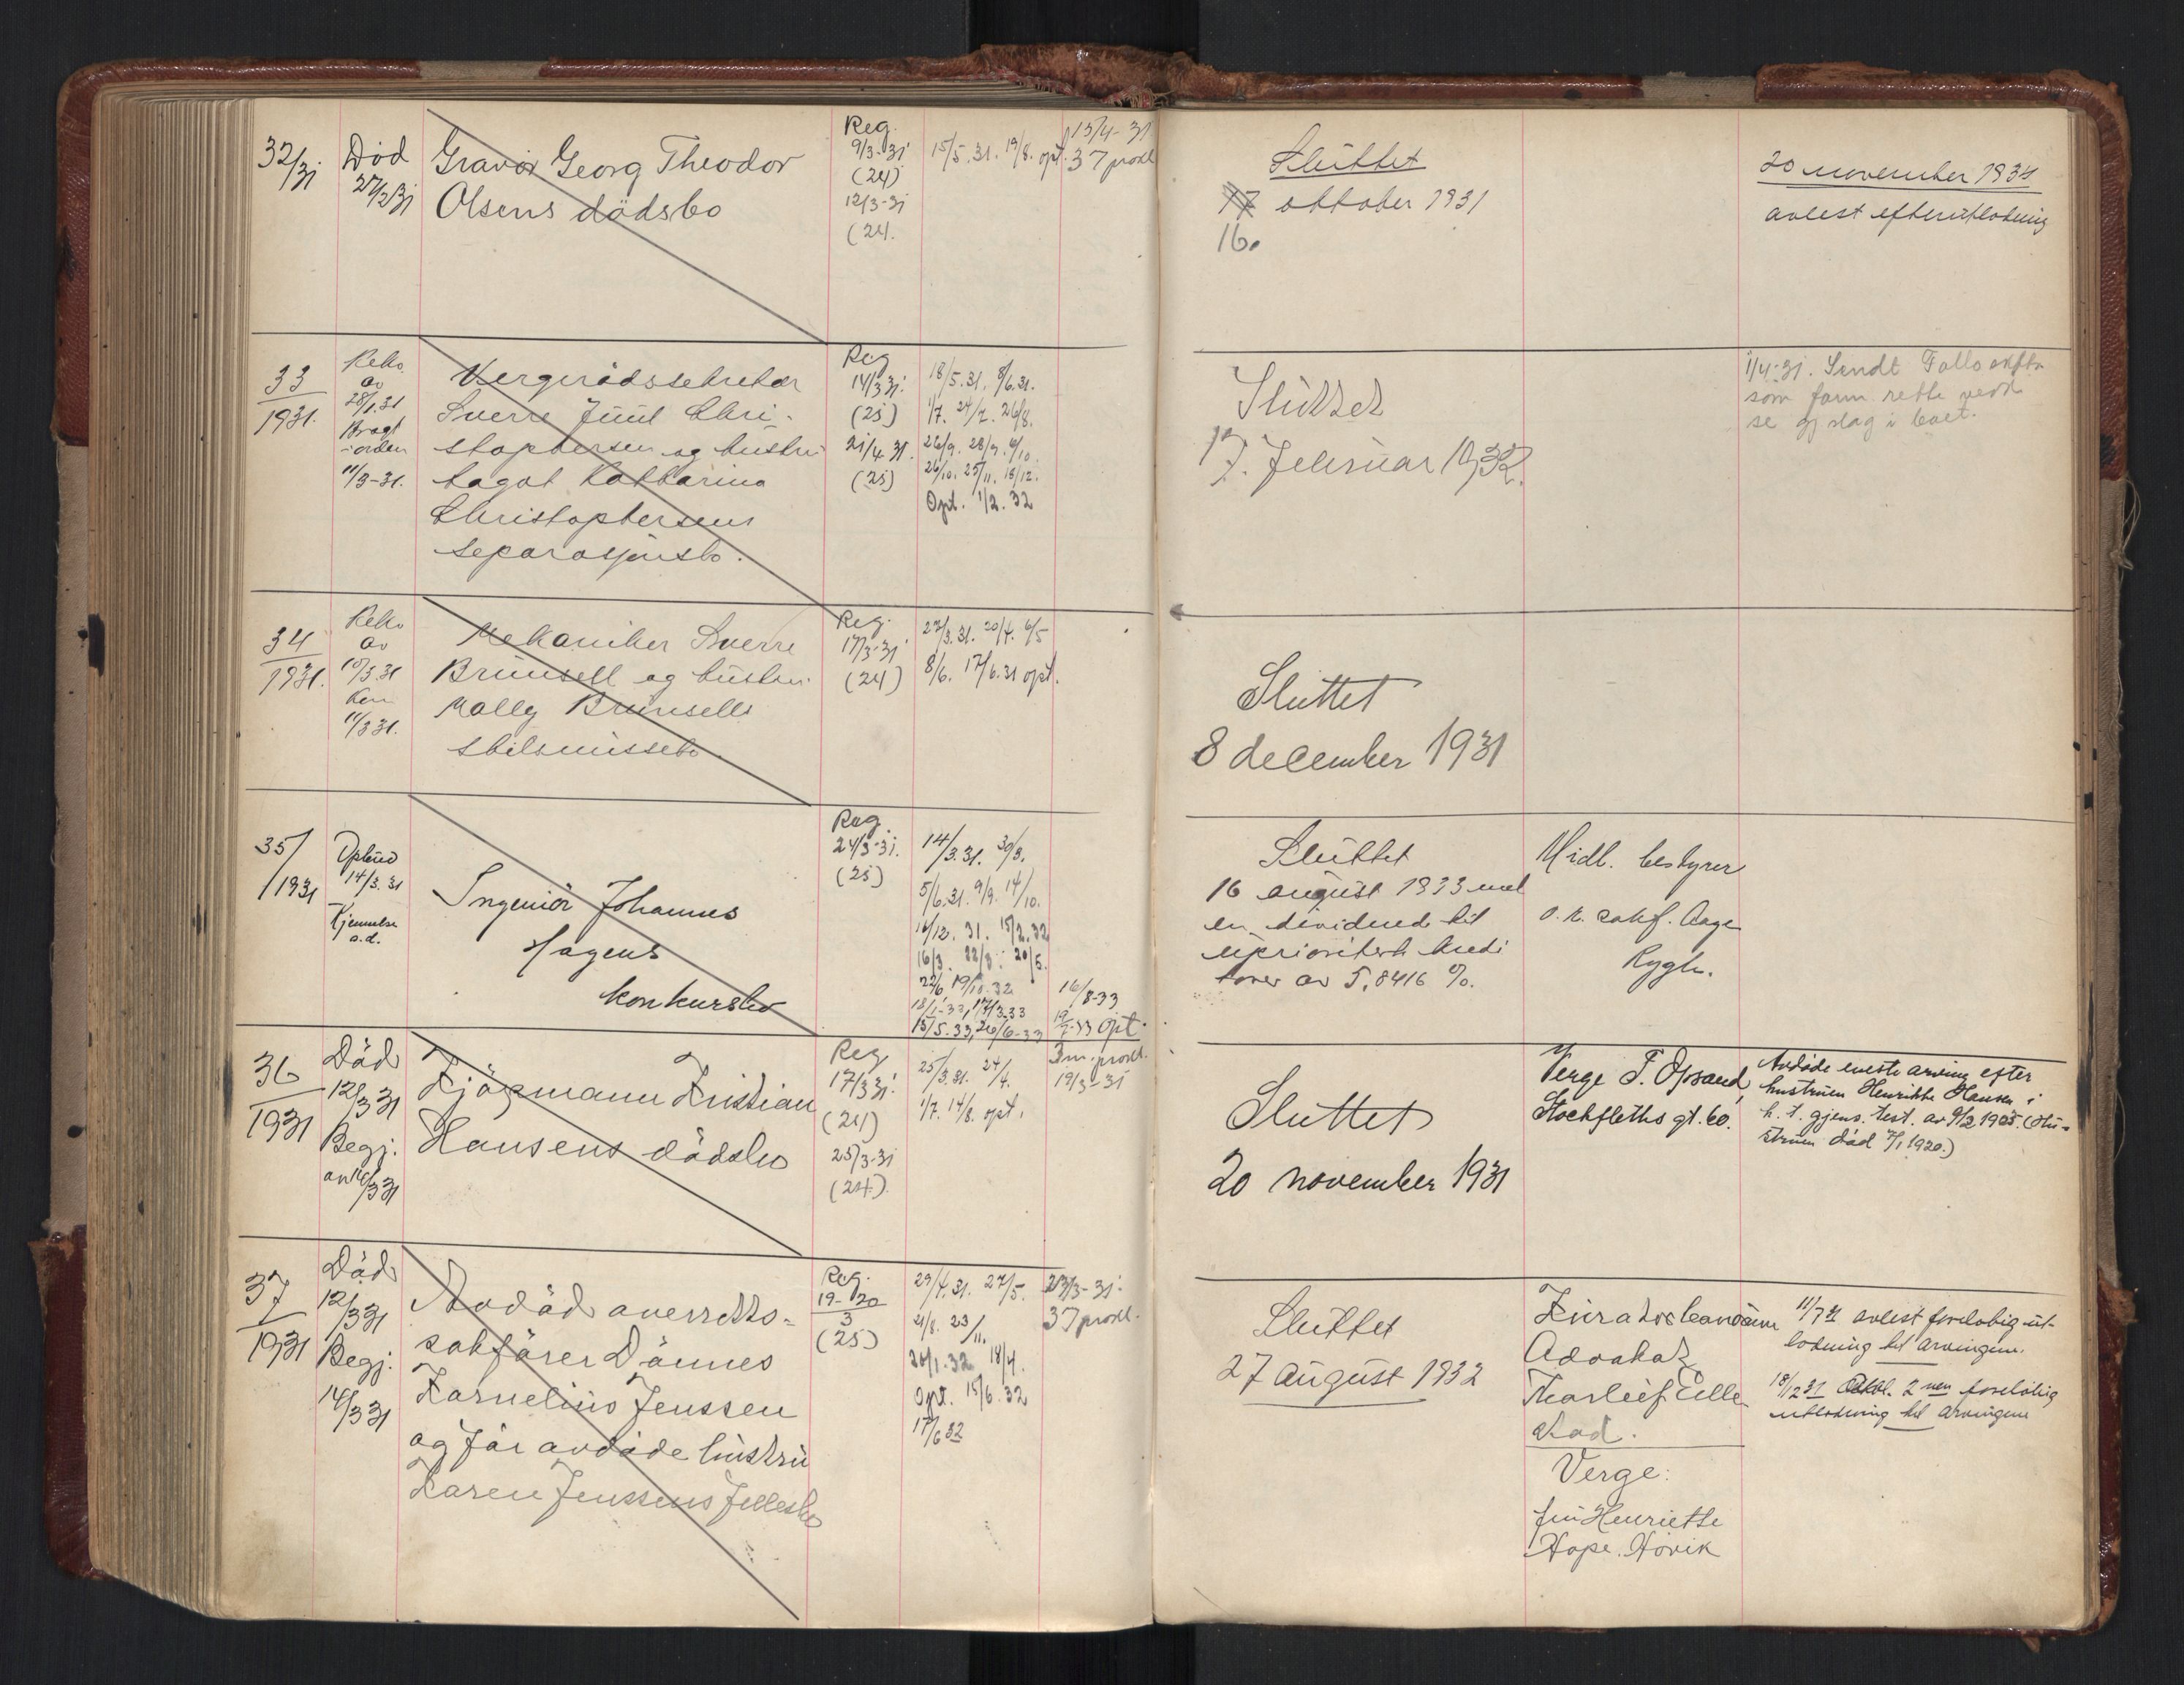 32/31
Död
27/2 31
Gravör Georg Theodor
Olsens dödsbo
Reg.
9/3-31
(24)
12/3-31
(24.
15/5.31. 19/8. opt.
13/4-31
37 procl
Sluttet
17 oktober 1931
16.
20 november 1934
avlest efterutlodning
33
1931.
av
28/1.31
Bragt
i orden
11/3-31.
Vergerådssekretær
Sverre Juul Chri-
stophersen og hustru
Dagot Katharina
Christophersens
separasjonsbo.
Reg
14/3 31.
(25)
21/4 31.
(25)
18/5.31. 8/6.31.
1/7. 24/7. 26/8.
26/9. 28/9. 6/10.
26/10. 25/11. 18/12.
Opt. 1/2. 32
Sluttet
17. Februar 1932.
1/4-31. Sendt Follo
som form rette vedk
i boet.
34
1931.
av
10/3.31
11/3 31.
Mekaniker Sverre
Brunsell og hustru
Molly Brunsells
skilsmissebo.
Reg.
17/3-31
(24)
23/3.31. 20/4. 6/5
8/6. 17/6.31 opt.
Sluttet
8 december 1931
35/
/1931
Opbud
14/3.31
Kjennelse
s.d.
Ingeniör Johannes
Hagens
konkursbo
Reg
24/3-31.
(25)
14/3.31. 30/3.
5/6.31. 9/9. 14/10.
16/12. 31. 15/2.32
16/3. 22/3. 20/5.
22/6 19/10.32
18/1-33, 17/3-33
15/5.33, 26/6-33
16/8-33
19/7-33 opt.
Sluttet
16 august 1933 med
en dividende til
uprioriterte kredi
torer av 5,8416 %.
Midl. bestyrer
o. r. sakf. Aage
Rygh.
36
1931
Död
12/3 31
Begj.
Kjöpmann Kristian
Hansens dödsbo
Reg
17/3 31.
(24)
25/3-31
(24)
25/3.31. 24/4.
1/7. 14/8. opt.
3 m. procl.
19/3-31
Sluttet
20 november 1931
Verge T. Opsand,
Stockfleths gt. 60.
Avdöde eneste arving efter
hustruen Henrikke Hansen i
h. t. gjens. test. av 9/2 1905. (Hu-
struen död 7/1 1920.)
37
1931
Död
12/3 31
Begj.
14/3 31
Avdöd overretts-
sakförer Dönnes
Kornelius Jenssen
og för avdöde hustru
Karen Jenssens fellesbo
Reg.
19-20
3
(25)
29/4.31. 27/5.
21/8. 23/11.
26/1.32 18/4.
Opt. 15/6.32
17/6 32
23/3-31.
37 procl.
Sluttet
27 august 1932
Advokat
Thorleif Elle-
stad.
Verge:
fru Henriette
Hope. Hövik
11/7 31 avlest forelöbig ut-
lodning til arvingene.
18/12 31 2 nen forelöbig
utlodning til arvingene